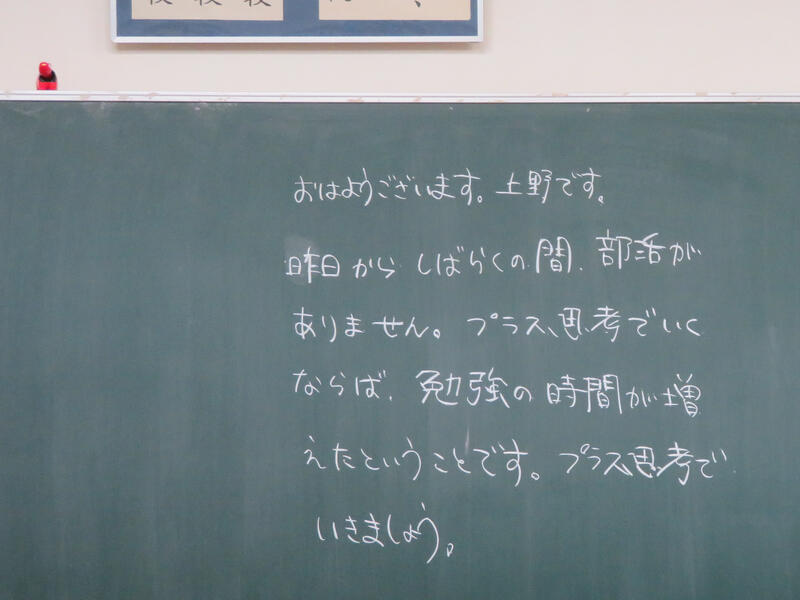 おはようございます。上野です。
昨日からしばらくの間、部活が
ありません。プラス思考でいく
ならば、勉強の時間が増
えたということです。プラス思考で
いきましょう。